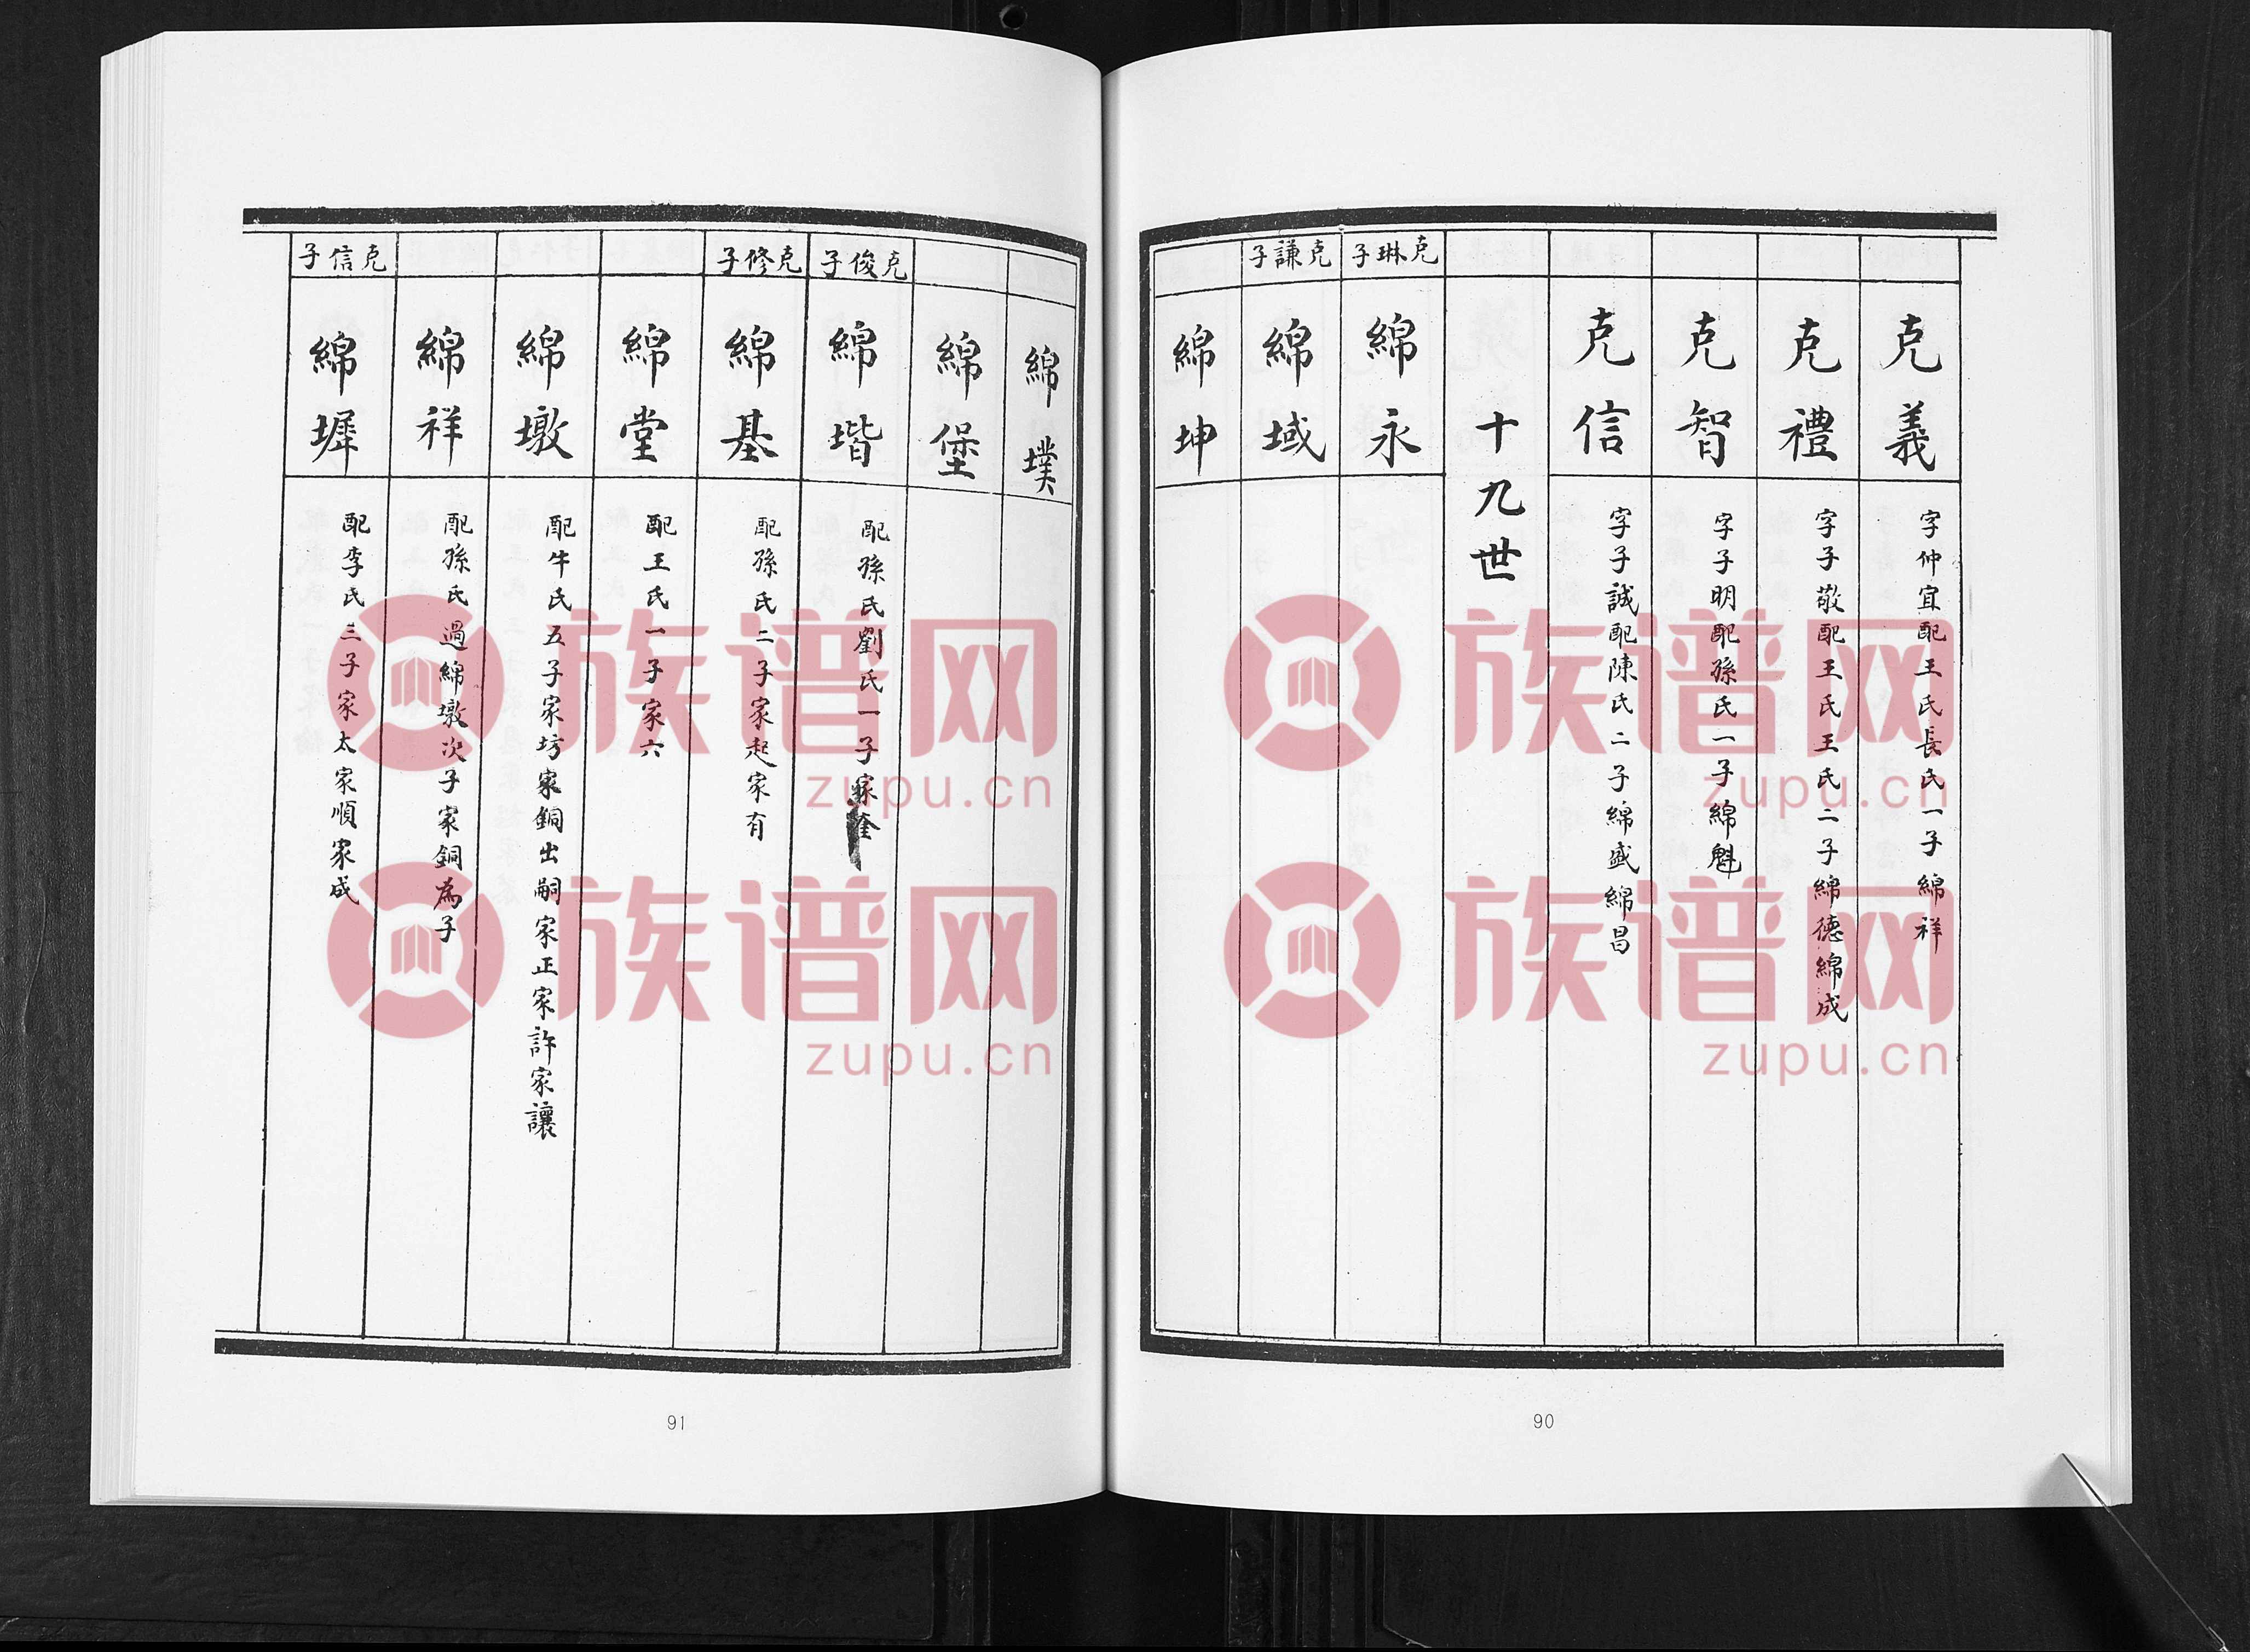 克義
字仲宜配王氏長氏一子綿祥
克禮
字子敬配王氏王氏二子綿德綿成
克智
字子明配孫氏一子綿魁
克信
字子誠配陳氏二子綿盛綿昌
十九世
克琳子
綿永
克謙子
綿域
綿坤
90
綿墣
綿堡
克俊子
綿堦
配孫氏劉氏一子家奎
克修子
綿基
配孫氏二子家起家有
綿堂
配王氏一子家六
綿墩
配牛氏五子家坊家銅出嗣家正家許家讓
綿祥
配孫氏過綿墩次子家銅為子
克信子
綿墀
配李氏三子家太家順家成
91
族谱网
zupu.cn
族谱网
zupu.cn
族谱网
zupu.cn
族谱网
zupu.cn